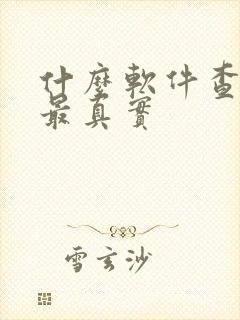 什麼軟件查
最真實
雪玄沙